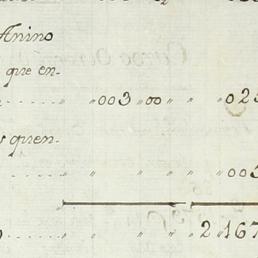 Anino
que en-
003 00 02
quen-
005
2167